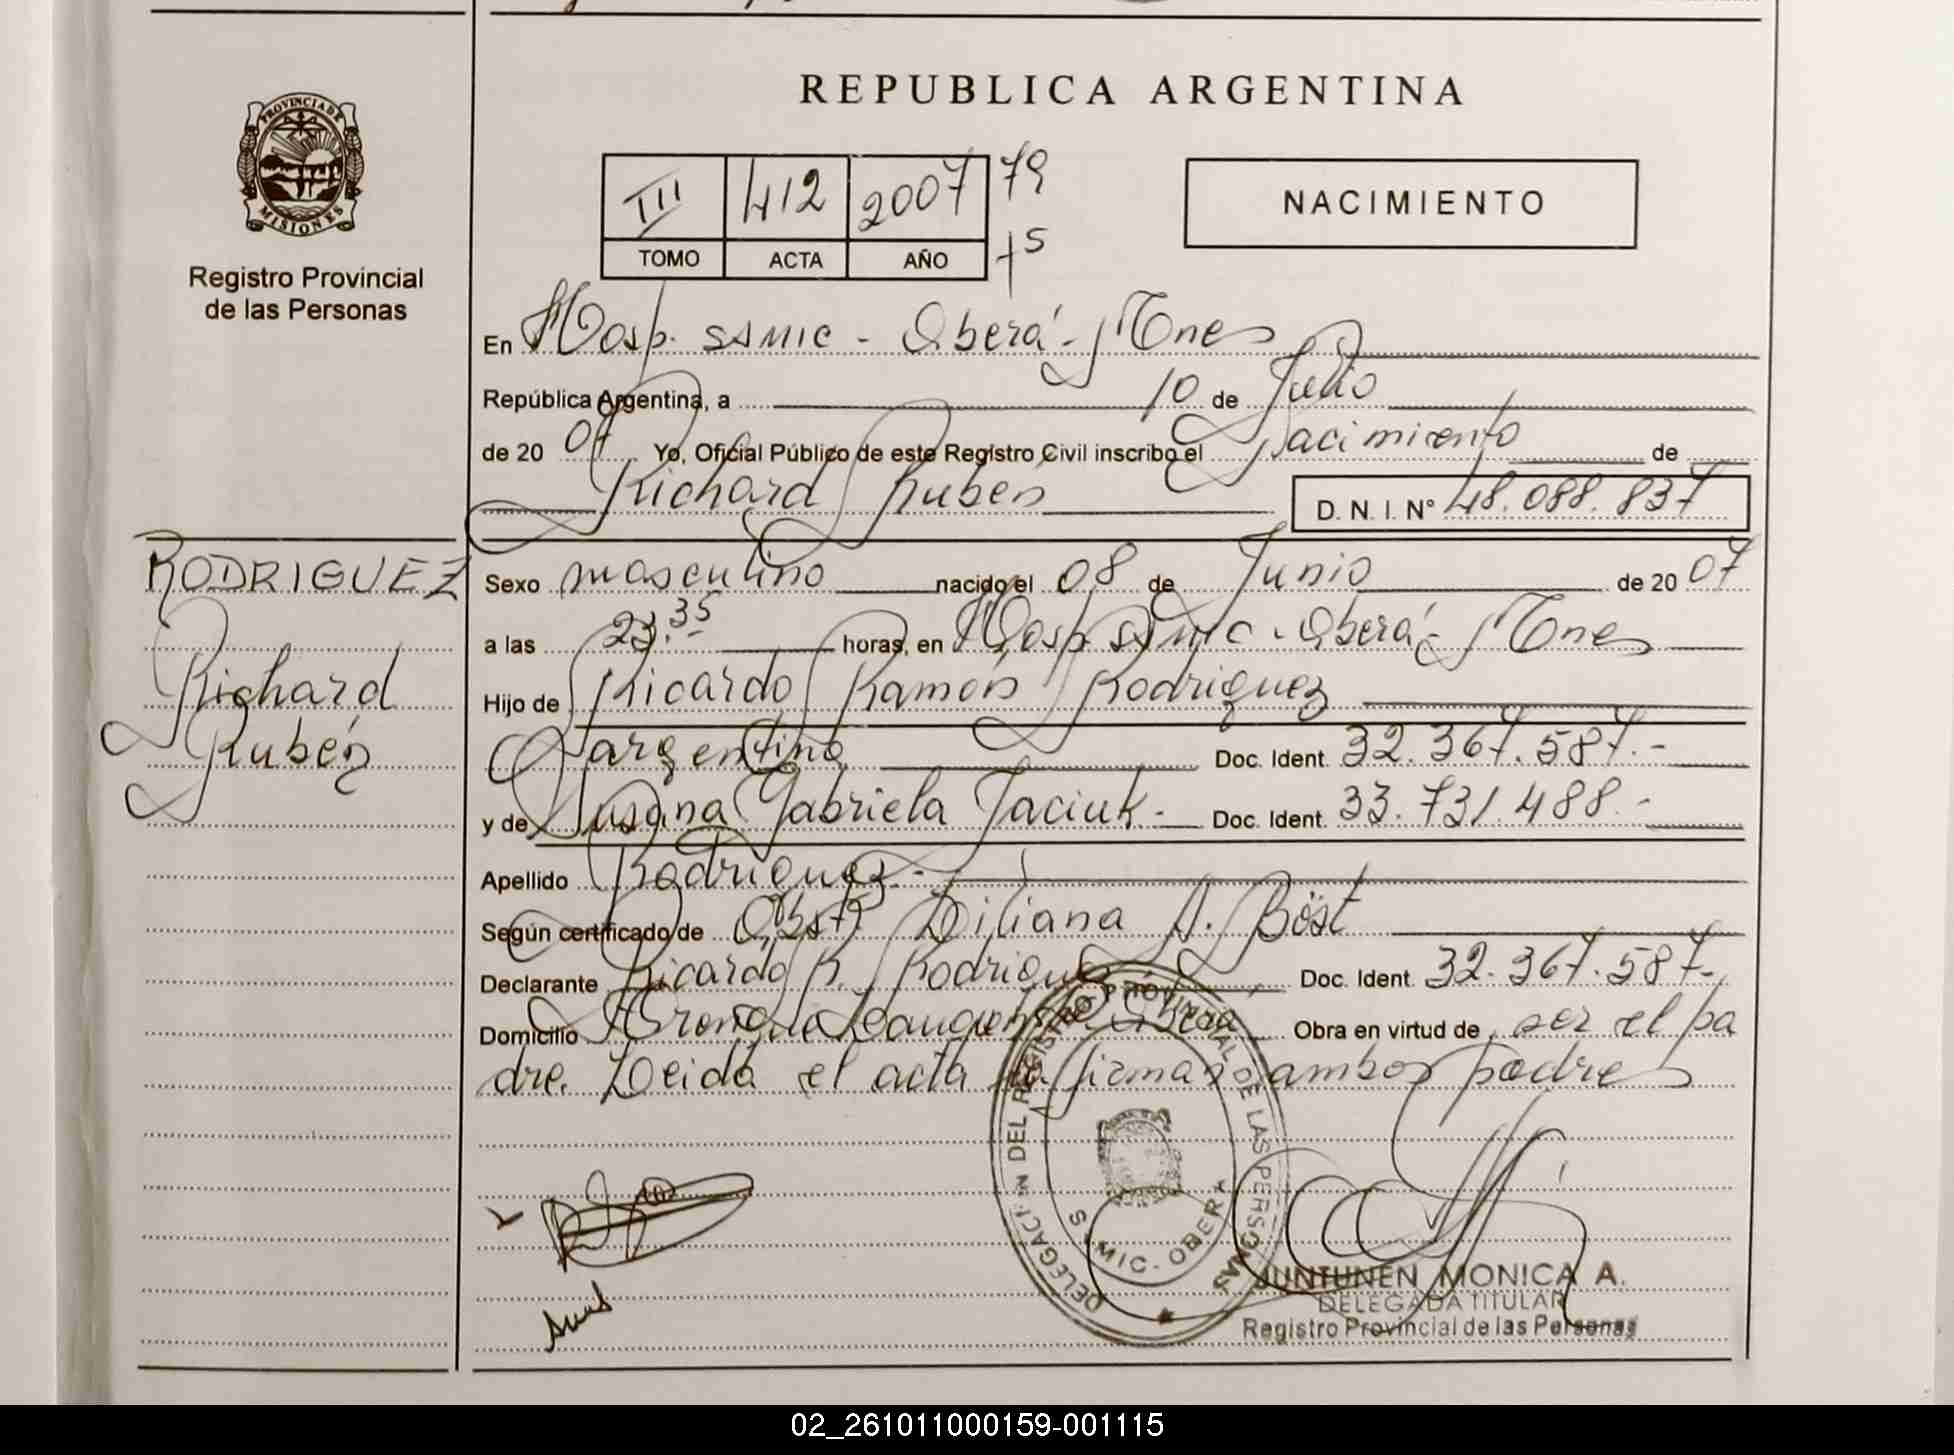 PROVINCIA DE
MISIONES
Registro Provincial
de las Personas
RODRIGUEZ
Richard
Rubén
REPUBLICA ARGENTINA
III 412 2007 79
TOMO ACTA AÑO +5
NACIMIENTO
En Hosp. SAMIC - Oberá - Mnes
República Argentina, a 10 de Julio
de 20 07 Yo, Oficial Público de este Registro Civil inscribo el Nacimiento de
Richard Rubén D. N. I. Nº 48.088.837
Sexo masculino nacido el 08 de Junio de 20 07
a las 23.35 horas, en Hosp SAMIC - Oberá - Mnes
Hijo de Ricardo Ramón Rodriguez
argentino Doc. Ident. 32.367.587.-
y de Susana Gabriela Taciuk.- Doc. Ident. 33.731.488.-
Apellido Rodriguez.-
Según certificado de Obst. Liliana A. Böst
Declarante Ricardo R. Rodriguez Doc. Ident. 32.367.587.-
Domicilio Oberá, Obra en virtud de ser el pa
dre. Leida el acta la firman ambos padres
DELEGACION DEL REGISTRO PROVINCIAL DE LAS PERSONAS
SAMIC - OBERA
JUNTUNEN MONICA A.
DELEGADA TITULAR
Registro Provincial de las Personas
02_261011000159-001115